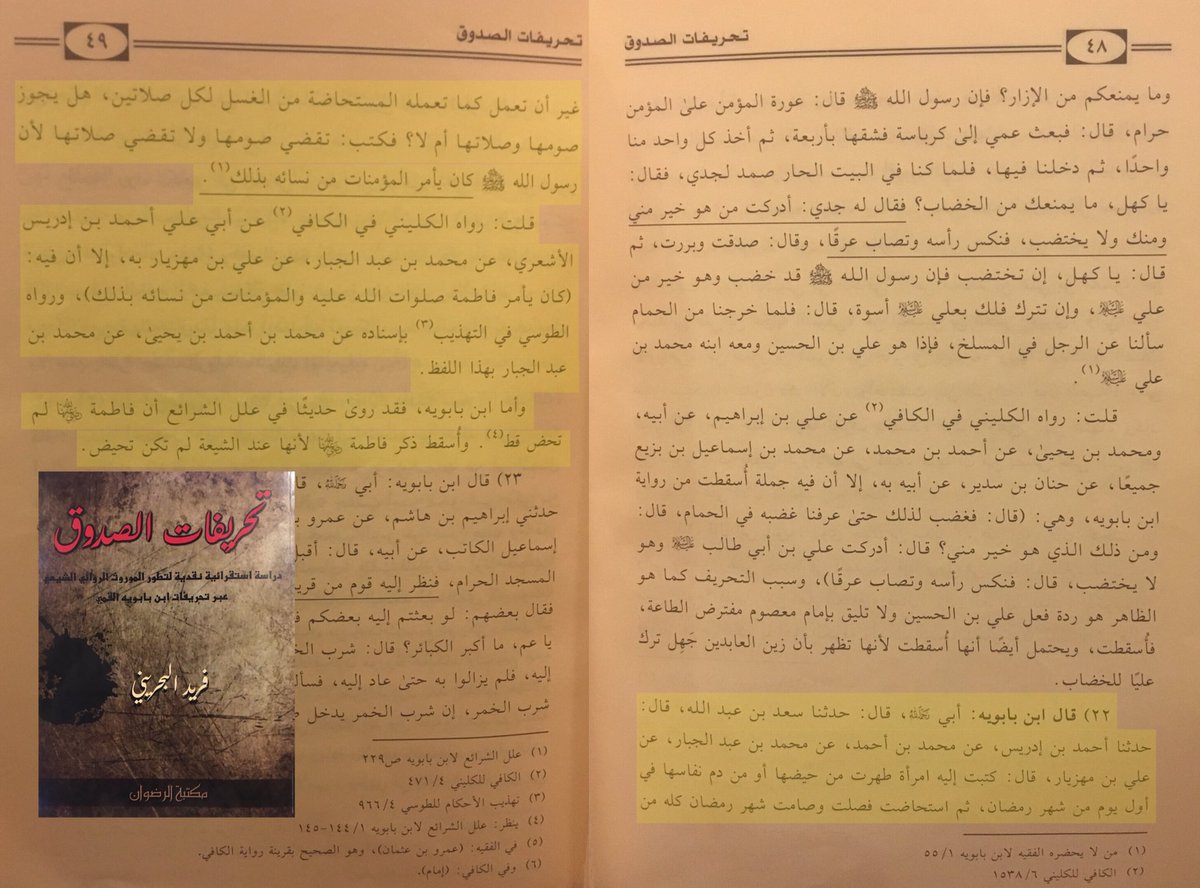 تحريفات الصدوق
٤٨
وما يمنعكم من الإزار؟ فإن رسول الله ﷺ قال: عورة المؤمن علىٰ المؤمن
حرام، قال: فبعث عمي إلىٰ كرباسة فشقها بأربعة، ثم أخذ كل واحد منا
واحدًا، ثم دخلنا فيها، فلما كنا في البيت الحار صمد لجدي، فقال:
يا كهل، ما يمنعك من الخضاب؟ فقال له جدي: أدركت من هو خير مني
ومنك ولا يختضب، فنكس رأسه وتصاب عرقًا، وقال: صدقت وبررت، ثم
قال: يا كهل، إن تختضب فإن رسول الله ﷺ قد خضب وهو خير من
علي عليه السلام، وإن تترك فلك بعلي عليه السلام أسوة، قال: فلما خرجنا من الحمام
سألنا عن الرجل في المسلخ، فإذا هو علي بن الحسين ومعه ابنه محمد بن
علي عليه السلام(١).
قلت: رواه الكليني في الكافي(٢) عن علي بن إبراهيم، عن أبيه،
ومحمد بن يحيىٰ، عن أحمد بن محمد، عن محمد بن إسماعيل بن بزيع
جميعًا، عن حنان بن سدير، عن أبيه به، إلا أن فيه جملة أُسقطت من رواية
ابن بابويه، وهي: (قال: فغضب لذلك حتىٰ عرفنا غضبه في الحمام، قال:
ومن ذلك الذي هو خير مني؟ قال: أدركت علي بن أبي طالب عليه السلام وهو
لا يختضب، قال: فنكس رأسه وتصاب عرقًا)، وسبب التحريف كما هو
الظاهر هو ردة فعل علي بن الحسين ولا تليق بإمام معصوم مفترض الطاعة،
فأسقطت، ويحتمل أيضًا أنها أُسقطت لأنها تظهر بأن زين العابدين جَهِل ترك
عليًا للخضاب.
٢٢) قال ابن بابويه: أبي رحمه الله، قال: حدثنا سعد بن عبد الله، قال:
حدثنا أحمد بن إدريس، عن محمد بن أحمد، عن محمد بن عبد الجبار، عن
علي بن مهزيار، قال: كتبت إليه امرأة طهرت من حيضها أو من دم نفاسها في
أول يوم من شهر رمضان، ثم استحاضت فصلت وصامت شهر رمضان كله من
(١) من لا يحضره الفقيه لابن بابويه ٥٥/١
(٢) الكافي للكليني ١٥٣٨/٦
تحريفات الصدوق
٤٩
غير أن تعمل كما تعمله المستحاضة من الغسل لكل صلاتين، هل يجوز
صومها وصلاتها أم لا؟ فكتب: تقضي صومها ولا تقضي صلاتها لأن
رسول الله ﷺ كان يأمر المؤمنات من نسائه بذلك(١).
قلت: رواه الكليني في الكافي(٢) عن أبي علي أحمد بن إدريس
الأشعري، عن محمد بن عبد الجبار، عن علي بن مهزيار به، إلا أن فيه:
(كان يأمر فاطمة صلوات الله عليه والمؤمنات من نسائه بذلك)، ورواه
الطوسي في التهذيب(٣) بإسناده عن محمد بن أحمد بن يحيىٰ، عن محمد بن
عبد الجبار بهذا اللفظ.
وأما ابن بابويه، فقد روىٰ حديثًا في علل الشرائع أن فاطمة رضي الله عنها لم
تحض قط(٤). وأُسقط ذكر فاطمة رضي الله عنها لأنها عند الشيعة لم تكن تحيض.
٢٣) قال ابن بابويه: أبي رحمه الله،
حدثني إبراهيم بن هاشم، عن عمرو
إسماعيل الكاتب، عن أبيه، قال:
المسجد الحرام، فنظر إليه قوم من
فقال بعضهم: لو بعثتم إليه بعضكم
يا عم، ما أكبر الكبائر؟ قال: شرب
إليه، فلم يزالوا به حتىٰ عاد إليه،
شرب الخمر، إن شرب الخمر يدخل
(١) علل الشرائع لابن بابويه ص٢٢٩
(٢) الكافي للكليني ٤٧١/٤
(٣) تهذيب الأحكام للطوسي ٩٦٦/٤
(٤) ينظر: علل الشرائع لابن بابويه ١٤٤/١-١٤٥
(٥) في الفقيه: (عمرو بن عثمان)، وهو الصحيح بقرينة رواية الكافي.
(٦) وفي الكافي: (إمام).
تحريفات الصدوق
دراسة استقرائية نقدية لتطور الموروث الروائي الشيعي
عبر تحريفات ابن بابويه القمي
فريد البحريني
مكتبة الرضوان